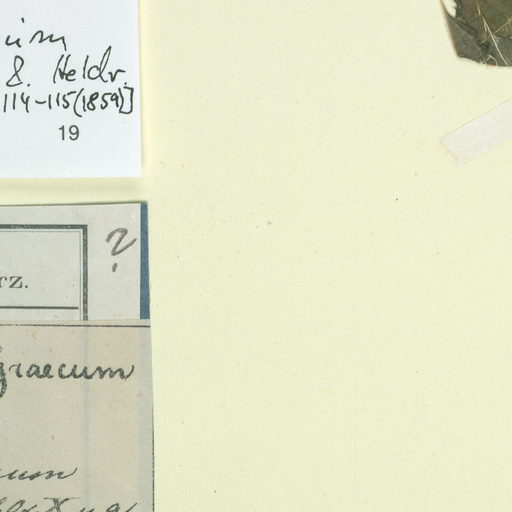 ium
8. Heldr.
114-115(1859)]
19
?
rz.
graecum